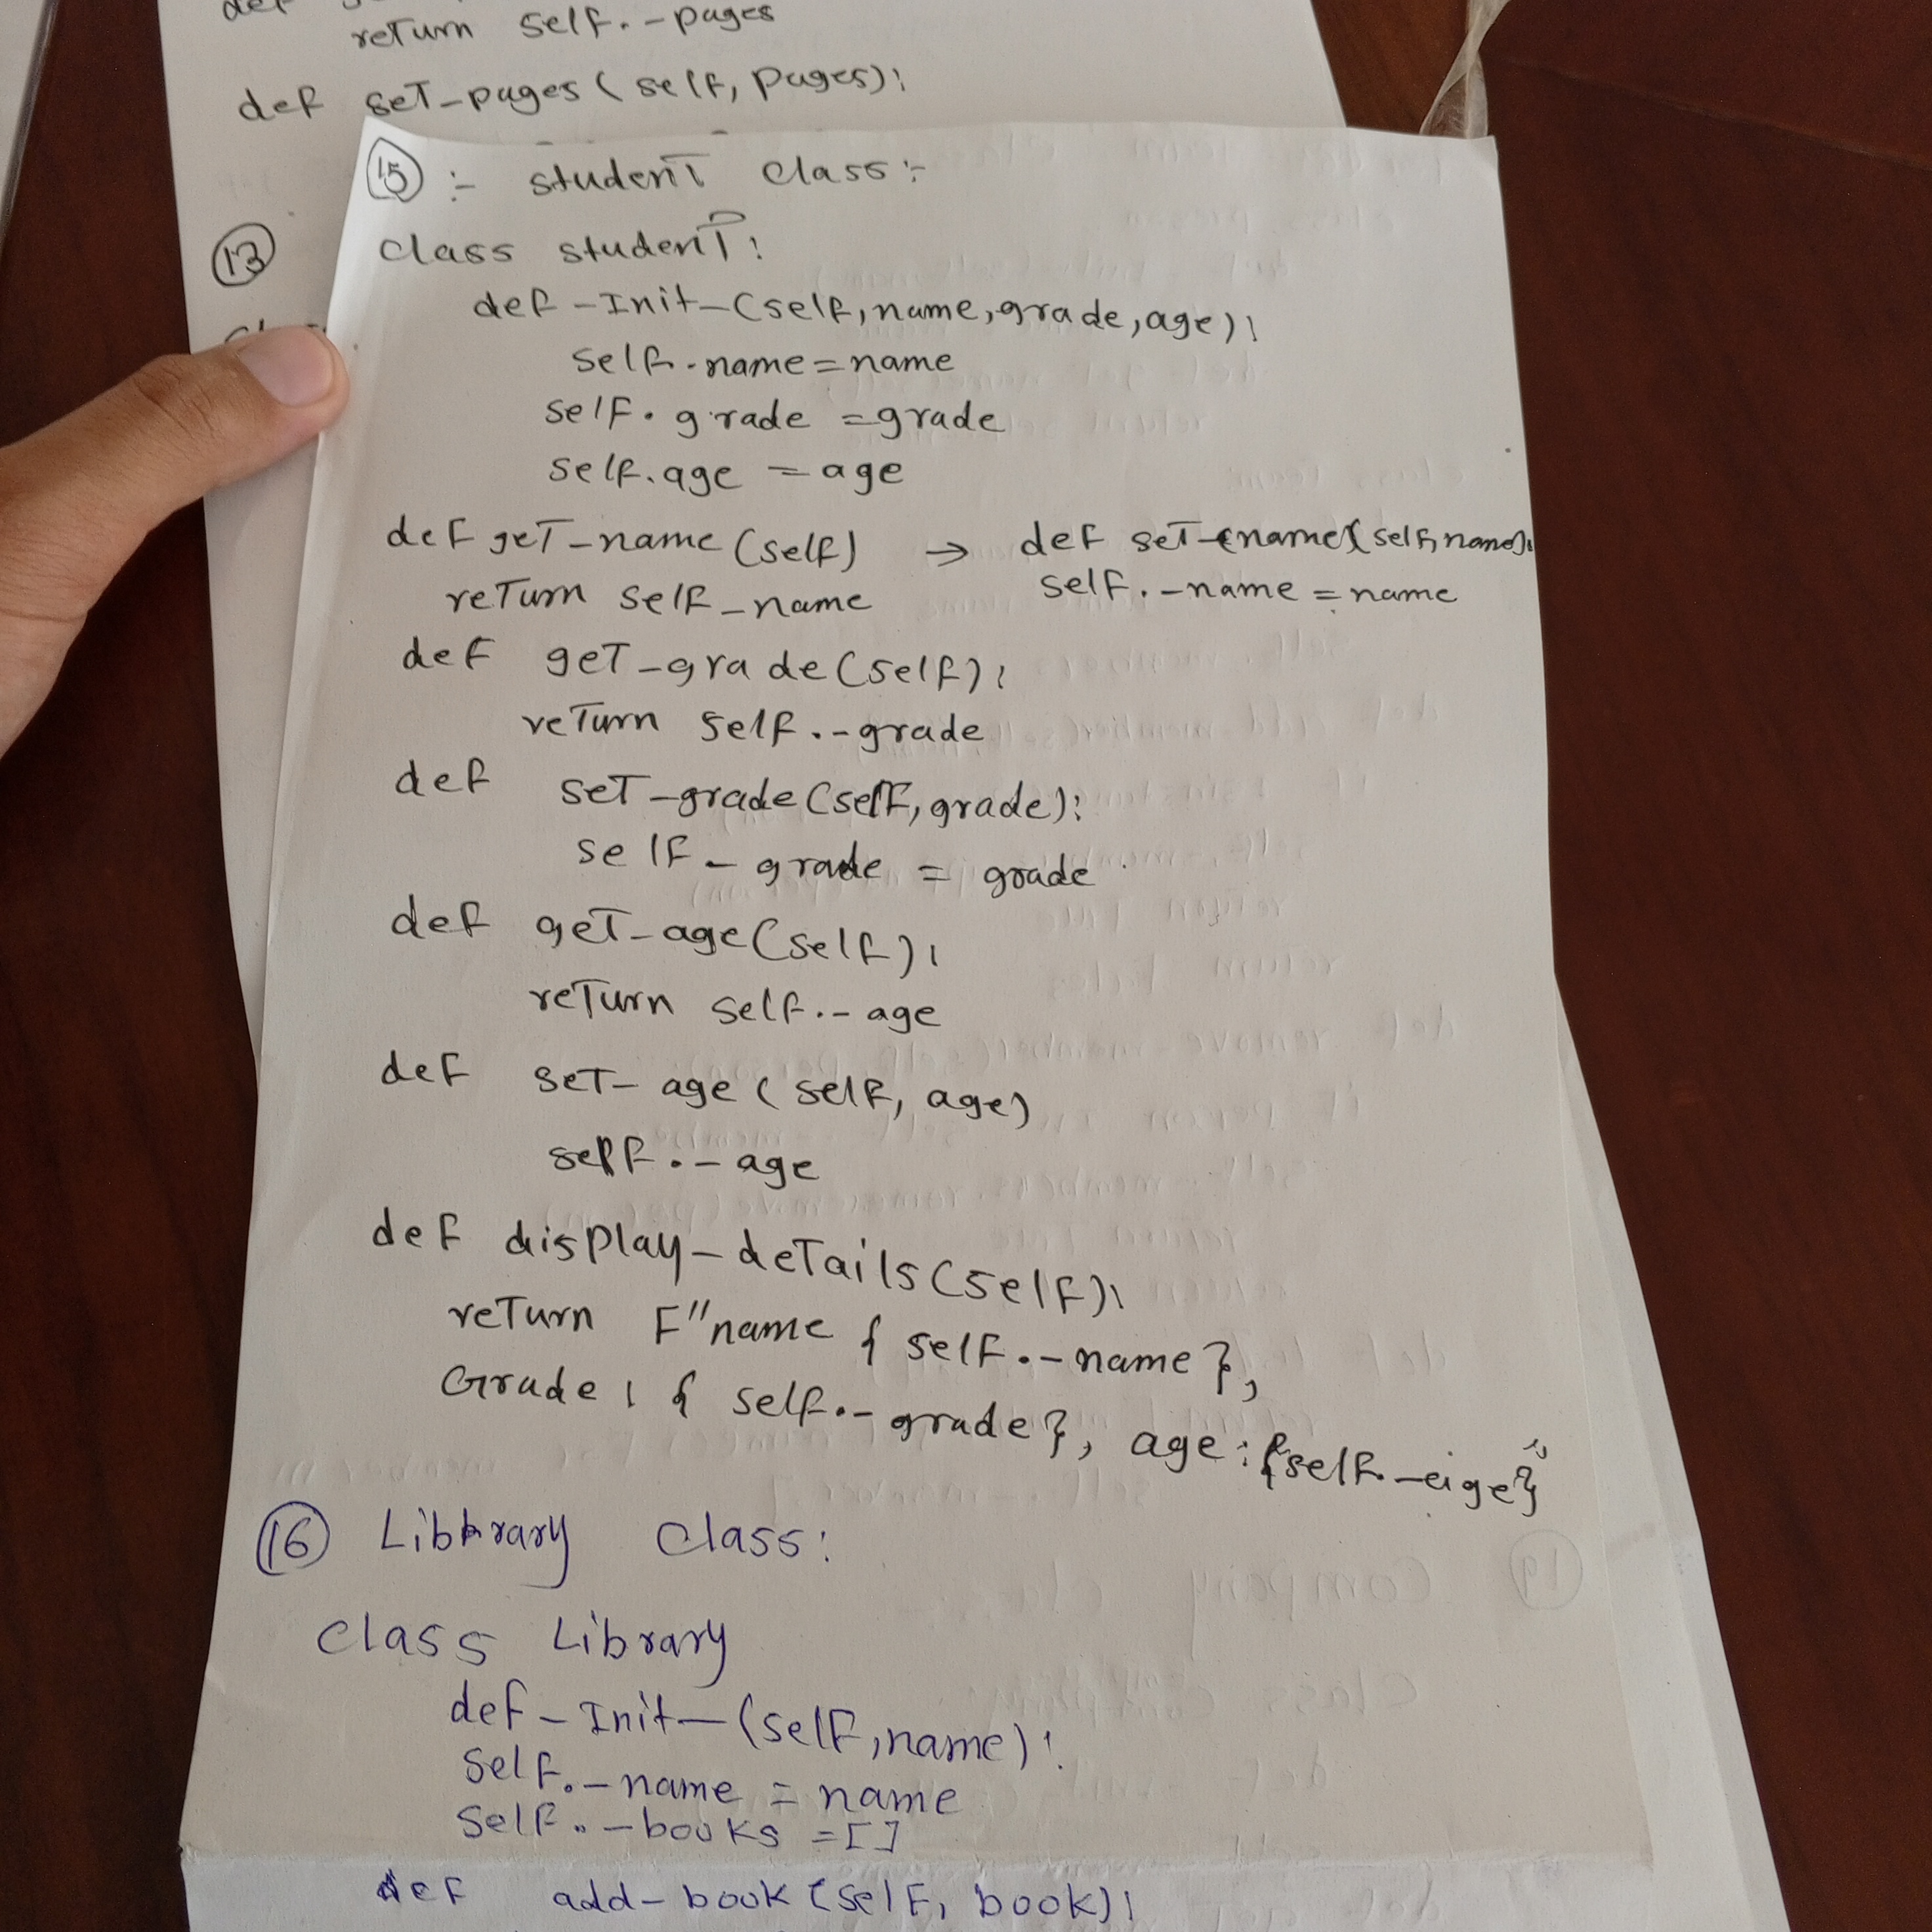 return self.-pages
def set-pages(self, pages):
15 :- student class:-
13
class student:
def -Init-(self,name,grade,age):
self.name=name
self.grade =grade
self.age =age
def get-name(self) → def set-name(self,name):
return self-name self.-name =name
def get-grade(self):
return self.-grade
def set-grade(self,grade):
self-grade = grade
def get-age(self):
return self.-age
def set-age(self, age)
self.-age
def display-details(self):
return F"name { self.-name },
Grade: { self.-grade}, age:{self.-eige}"
16 Library class:
class Library
def-Init-(self,name):
self.-name = name
self.-books =[]
def add-book(self, book):